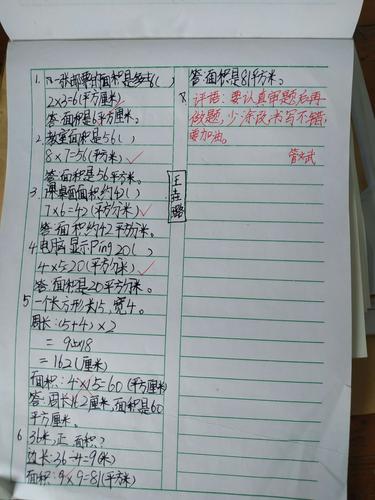 1. 一张邮票的面积是多少()
2×3=6(平方厘米)
答:面积是6平方厘米。
2.教室面积是56()
8×7=56(平方米)
答:面积是56平方米。
3.课桌面面积约42()
7×6=42(平方分米)
答:面积约42平方分米。
4.电脑显示Ping20()
4×5=20(平方分米)
答:面积是20平方分米。
5 一个长方形长15,宽4。
周长:(15+4)×2
=
=162(厘米)
面积:4×15=60(平方厘米)
答:周长162厘米,面积是60
平方厘米。
6 36米,正 面积?
边长:36÷4=9(米)
面积:9×9=81(平方米)
答:面积是81平方米。
评语:要认真审题后再
做题,少涂改,书写不错,
要加油。